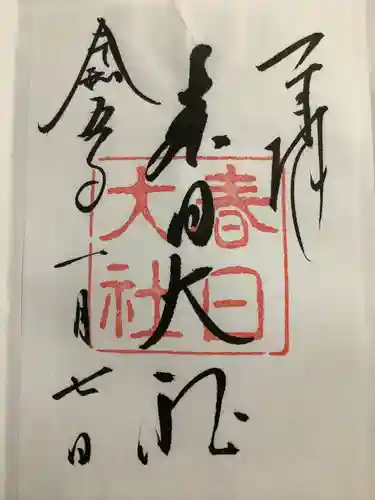 奉拝
春日大社
春日大社
令和五年
一月七日